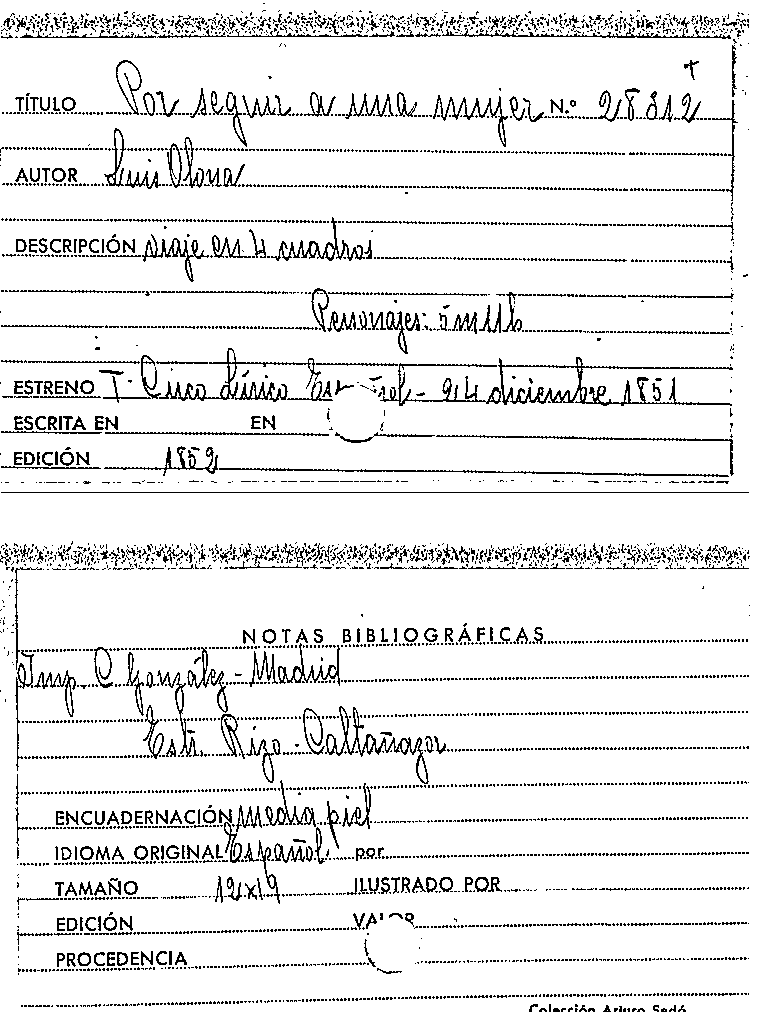 TÍTULO Por seguir a una mujer N.º 28812
AUTOR Luis Olona
DESCRIPCIÓN viaje en 4 cuadros
Personajes: 5 m 11 h
ESTRENO T. Circo Lírico - 24 diciembre 1851
ESCRITA EN EN
EDICIÓN 1852
NOTAS BIBLIOGRÁFICAS
Imp. C González - Madrid
Estr. Rizo - Caltañazor
ENCUADERNACIÓN media piel
IDIOMA ORIGINAL Español por
TAMAÑO 12x19 ILUSTRADO POR
EDICIÓN VALOR
PROCEDENCIA
Colección Arturo Sedó